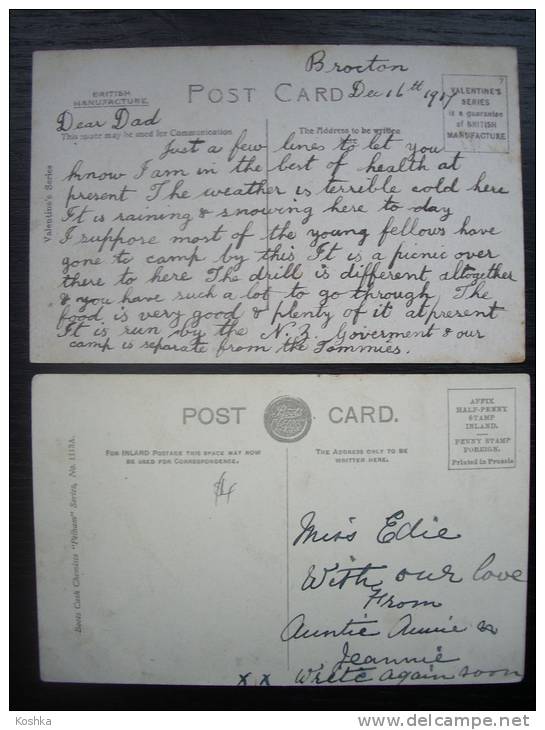 Brocton
BRITISH
MANUFACTURE.
POST CARD
Dec 16th 1917
7
VALENTINE'S
SERIES
is a guarantee
of BRITISH
MANUFACTURE
Dear Dad
This space may be used for Communication
The Address to be written
Valentine's Series
Just a few lines to let you
know I am in the best of health at
present The weather is terrible cold here
It is raining & snowing here to day
I suppose most of the young fellows have
gone to camp by this It is a picnic over
there to here The drill is different altogether
& you have such a lot to go through The
food is very good & plenty of it at present
It is run by the N. Z. Goverment & our
camp is separate from the Tommies.
POST CARD.
Boots
AFFIX
HALF-PENNY
STAMP
INLAND.
PENNY STAMP
FOREIGN.
Printed in Prussia
FOR INLAND POSTAGE THIS SPACE MAY NOW
BE USED FOR CORRESPONDENCE.
THE ADDRESS ONLY TO BE
WRITTEN HERE.
Boots Cash Chemists "Pelham" Series, No. 1113A.
Miss Edie
With our love
From
Auntie Annie &
Jeannie
x x Write again soon
Koshka
www.delcampe.net